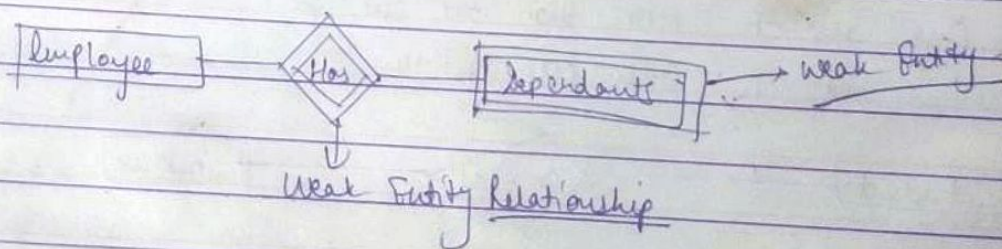 Employee Has Dependants → Weak Entity
Weak Entity Relationship